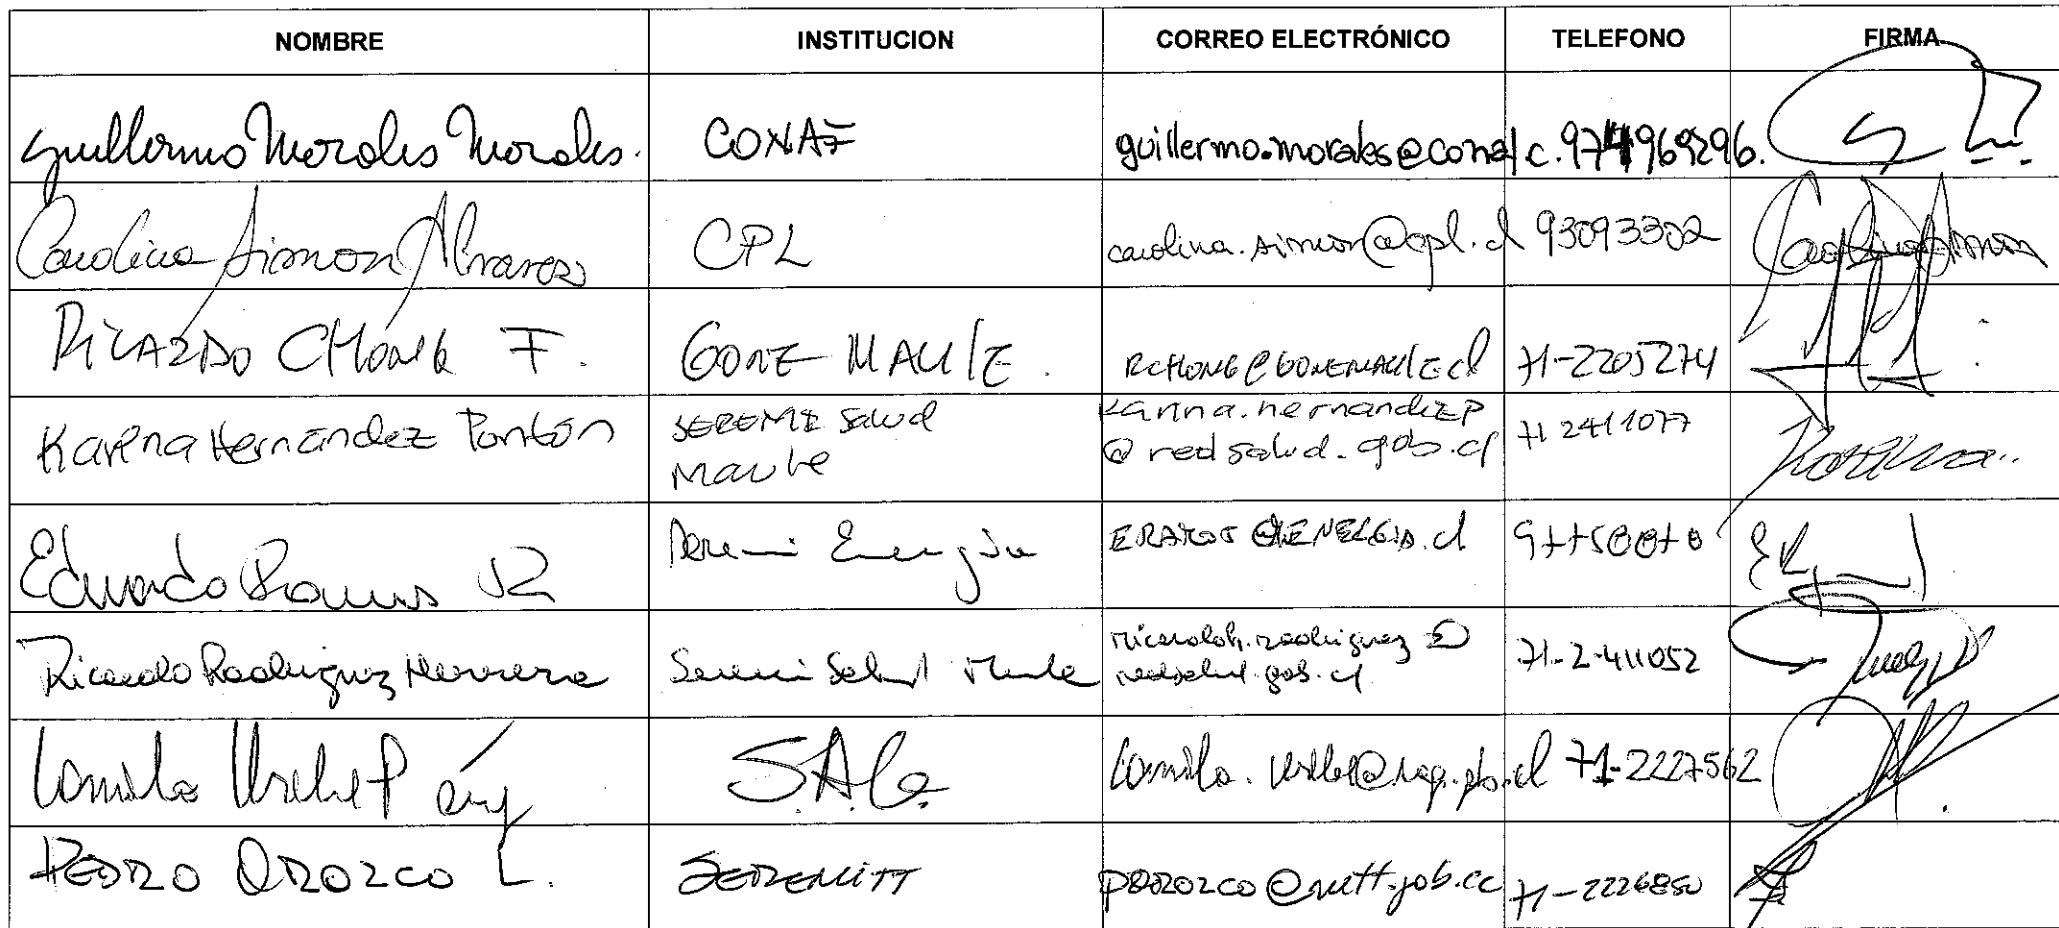 NOMBRE INSTITUCION CORREO ELECTRÓNICO TELEFONO FIRMA
Guillermo Morales Morales. CONAF guillermo.morales@conaf.c. 974969296.
Carolina Simon Alvarez CPL carolina.simon@cpl.cl 93093302 Carolina Simon
RICARDO CHONG F. GORE MAULE. RCHONG@GOREMAULE.cl 71-2205274
Karina Hernández Pontón SEREMI Salud karina.hernandezp 71 2411077
Maule @redsalud.gob.cl
Eduardo Ramos Seremi Energía @ENERGIA.cl
Ricardo Rodriguez Herrera Seremi Salud Maule ricardoh.rodriguez@ 71-2-411052
redsalud.gob.cl
Camila Uribe S.A.G. camila.uribe@sag.gob.cl 71-2227562
PEDRO OROZCO L. SEREMITT POROZCO@mtt.gob.cl 71-2226850